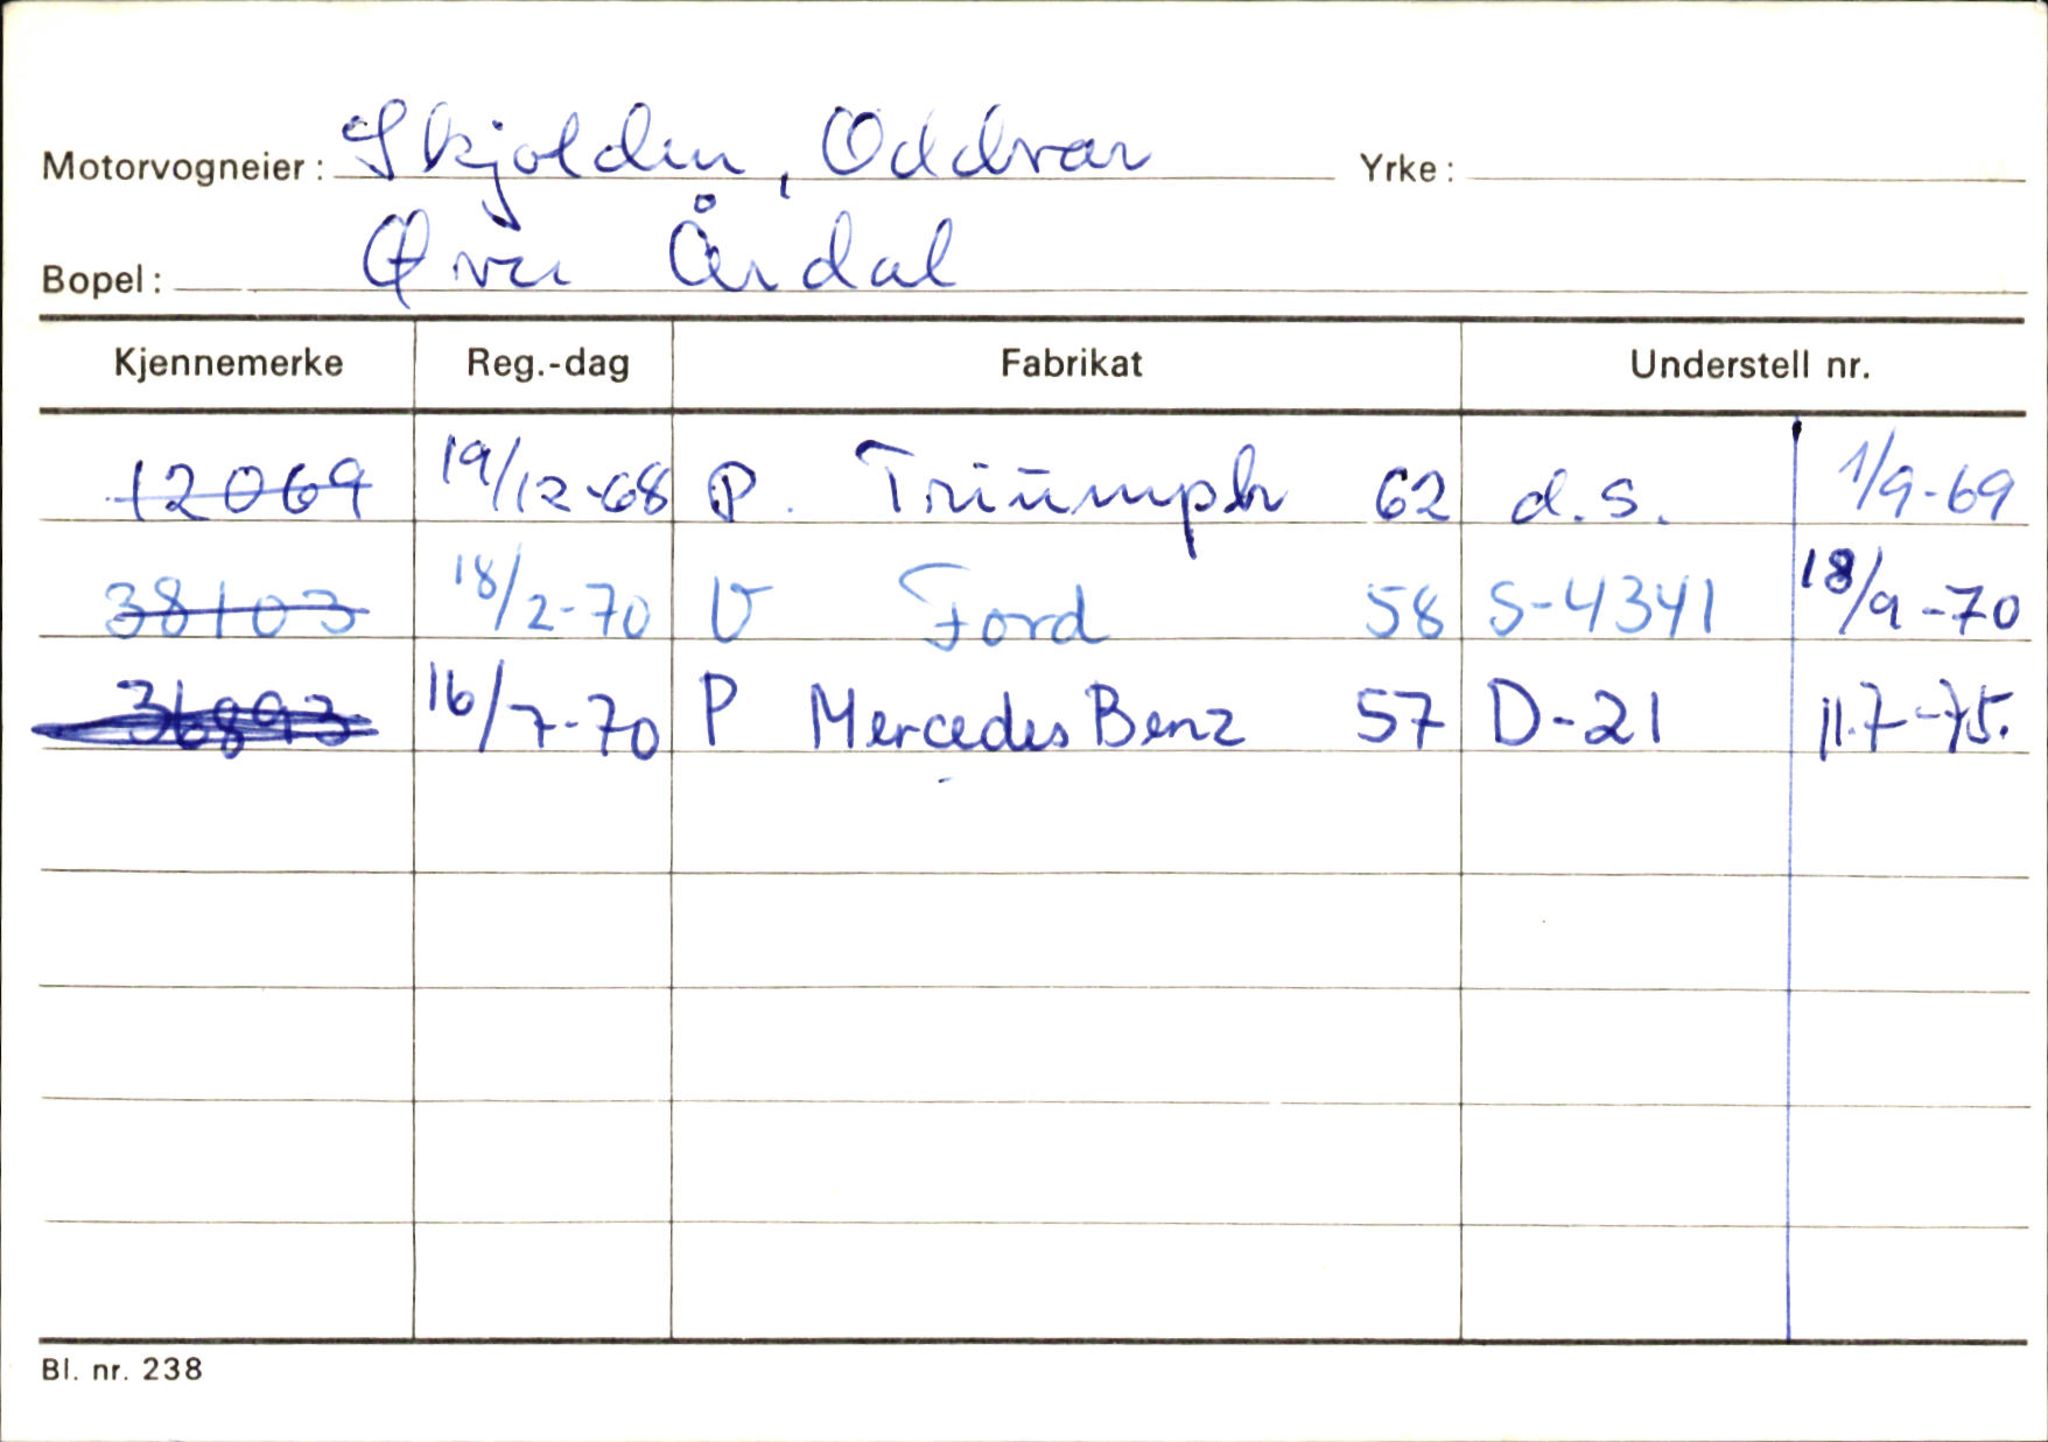 Motorvogneier: Skjolden, Oddvar Yrke:
Bopel: Øvre Årdal
Kjennemerke Reg.-dag Fabrikat Understell nr.
12069 19/12-68 P. Triumph 62 d.s. 1/9-69
38103 18/2-70 V Ford 58 S-4341 18/9-70
36893 16/7-70 P Mercedes Benz 57 D-21 11.7-75.
Bl. nr. 238